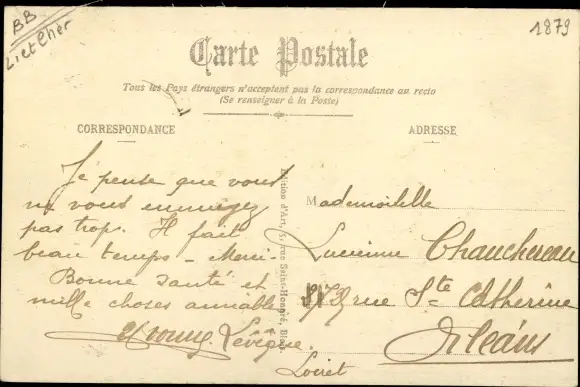 BB
L-et-Cher
1879
Carte Postale
Tous les Pays étrangers n'acceptent pas la correspondance au recto
(Se renseigner à la Poste)
CORRESPONDANCE
ADRESSE
Je pense que vous
ne vous ennuyez
pas trop. Il fait
beau temps – Merci –
Bonne santé et
mille choses aimables
Yvonne Lévêque.
Edition d'Art, Saint-Honoré, Blois
Mademoiselle
Lucienne Chauchereau
73 rue Ste Catherine
Orléans
Loiret